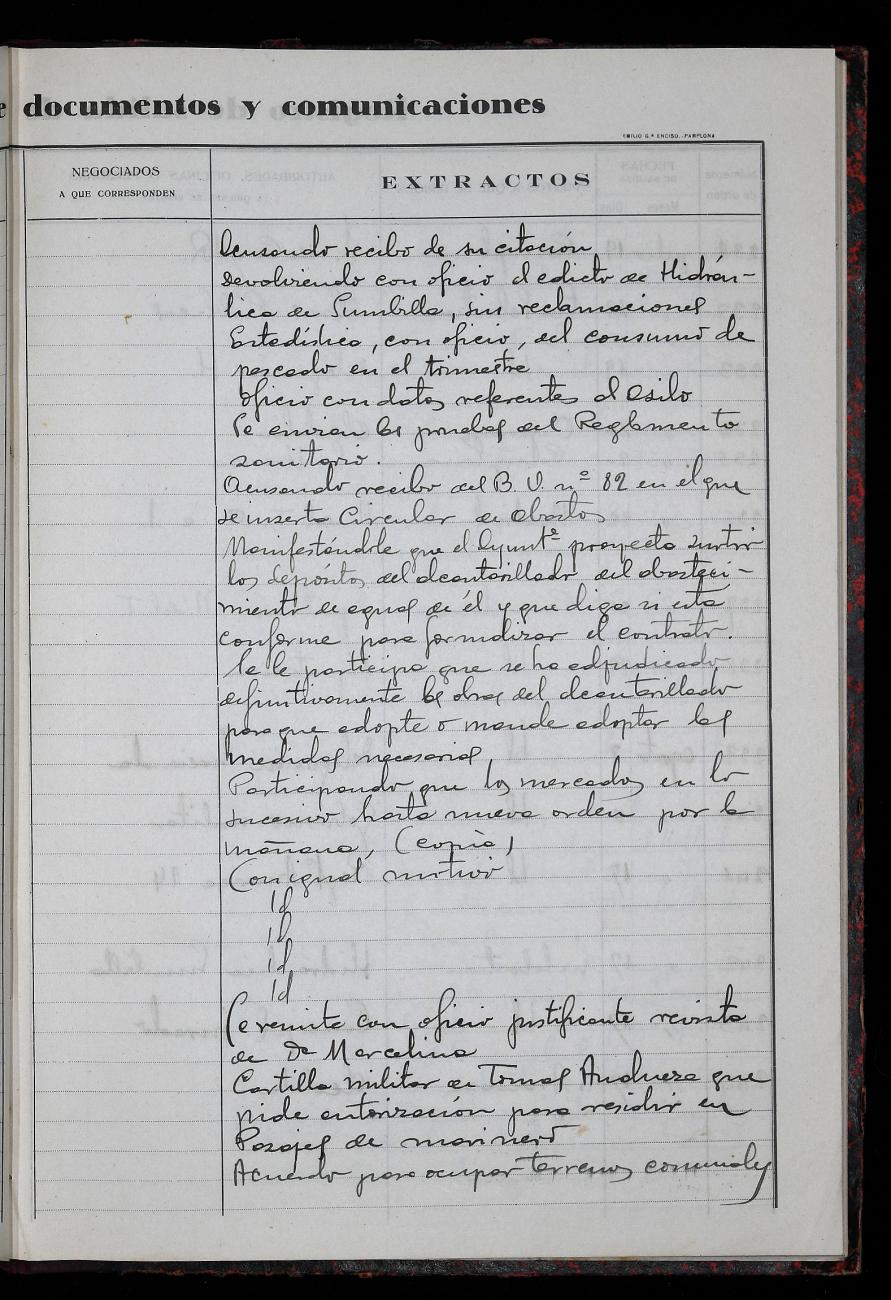 e documentos y comunicaciones
EMILIO G.ª ENCISO.-PAMPLONA
NEGOCIADOS
A QUE CORRESPONDEN
EXTRACTOS
Acusando recibo de su citación
Devolviendo con oficio el edicto de Hidráu-
lica de Sumbilla, sin reclamaciones
Estadística, con oficio, del consumo de
pescado en el trimestre
Oficio con datos referentes al Asilo
Se envian las pruebas del Reglamento
sanitario.
Acusando recibo del B. O. nº 82 en el que
se inserta Circular de abastos
Manifestándole que el Ayuntº proyecta surtir
los depósitos del alcantarillado del abasteci-
miento de agua de él y que diga si está
conforme para formalizar el contrato.
Se le participa que se ha adjudicado
definitivamente las obras del alcantarillado
para que adopte o mande adoptar las
medidas necesarias,
Participando que los mercados en lo
sucesivo hasta nueva orden por la
mañana, (copia)
Con igual motivo
Id
Id
Id
Id
Se remite con oficio justificante revista
de Dª Marcelina
Cartilla militar de Tomas Andueza que
pide autorización para residir en
Pasajes de marinero
Acuerdo para ocupar terrenos comunales